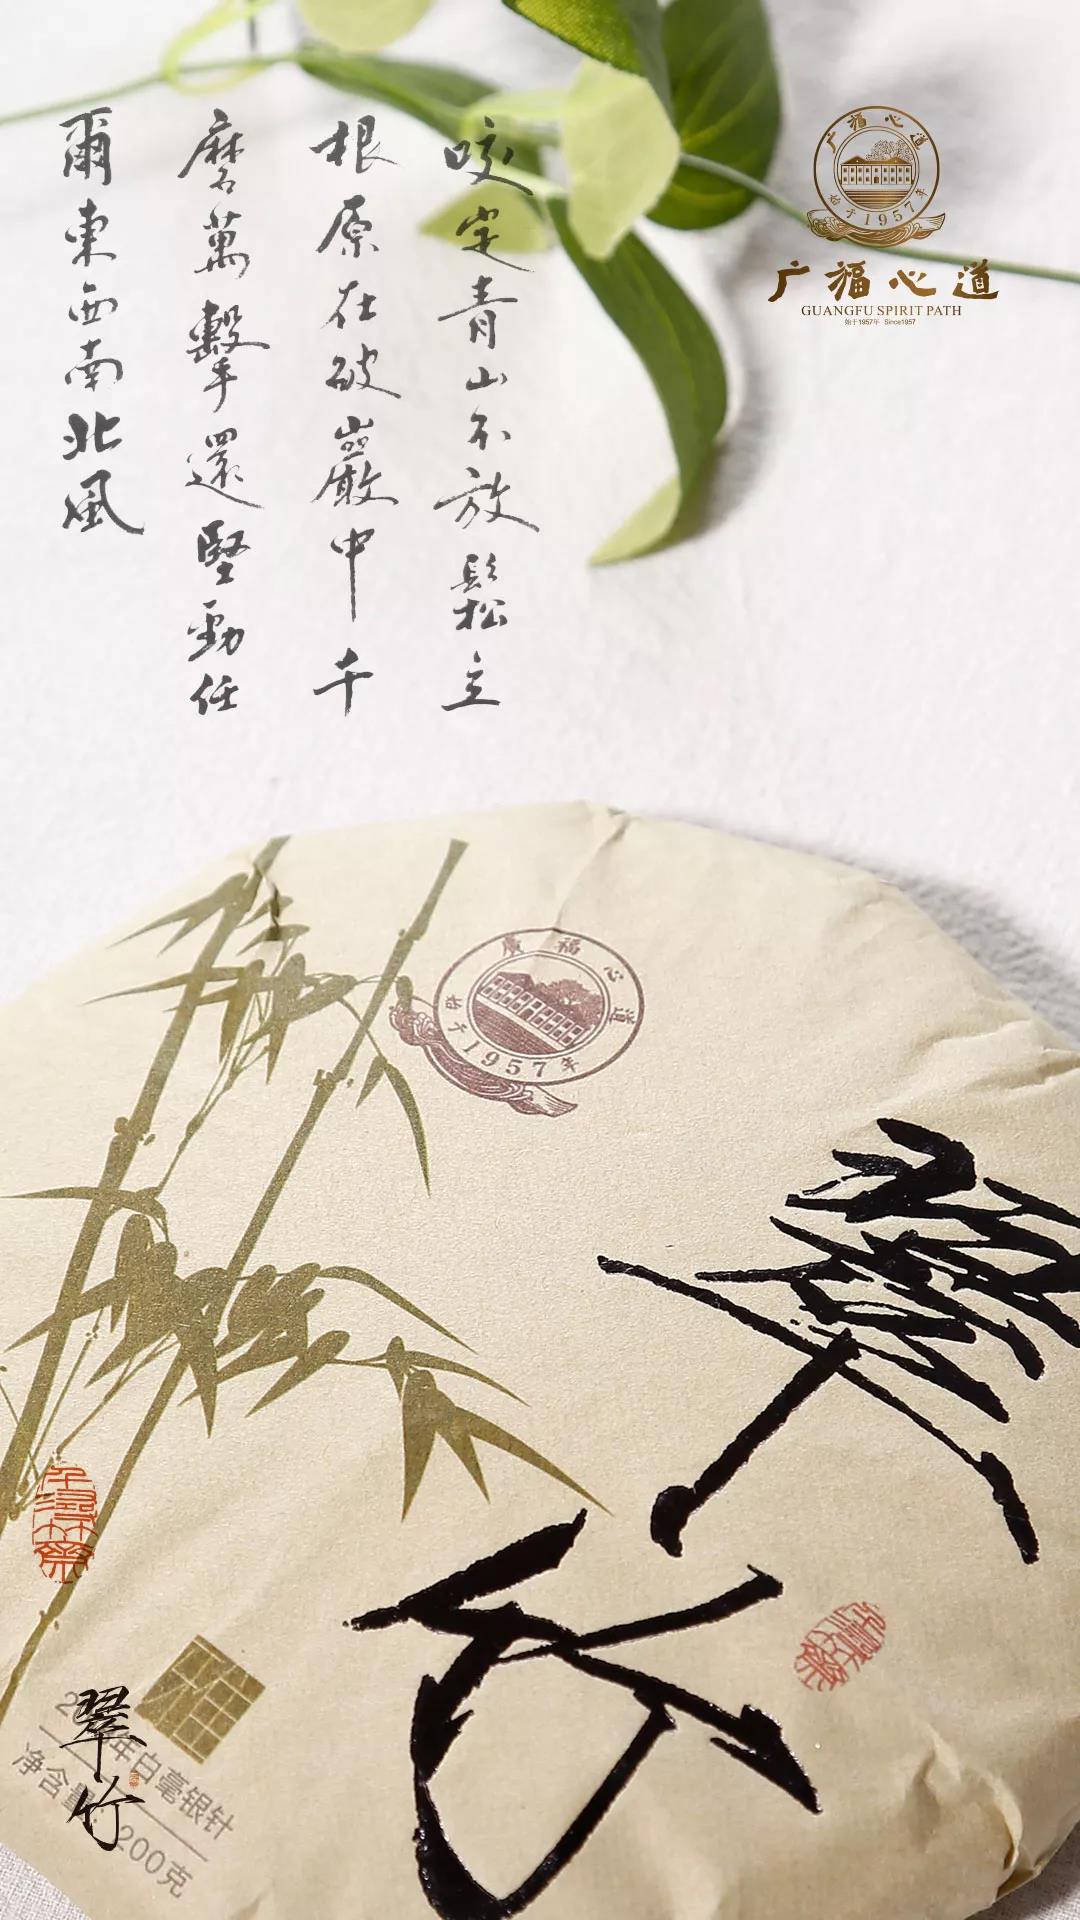 咬定青山不放鬆立
根原在破巖中千
磨萬擊還堅勁任
爾東西南北風
广福心道
始于1957年
广福心道
GUANGFU SPIRIT PATH
始于1957年 Since1957
廣福心道
始于1957年
翠竹
年白毫银针
净含量：200克
翠竹